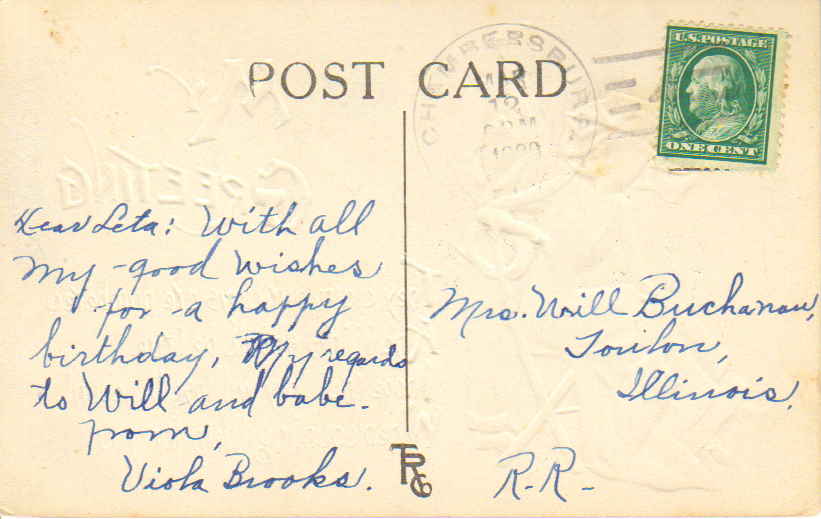 POST CARD
CHAMBERSBURG
12
6 PM
U.S. POSTAGE
ONE CENT
GREETING
Dear Leta: With all
my good wishes
for a happy
birthday, My regards
to Will and babe.
from,
Viola Brooks.
Mrs. Will Buchanan,
Toulon,
Illinois.
R-R-
TRCo